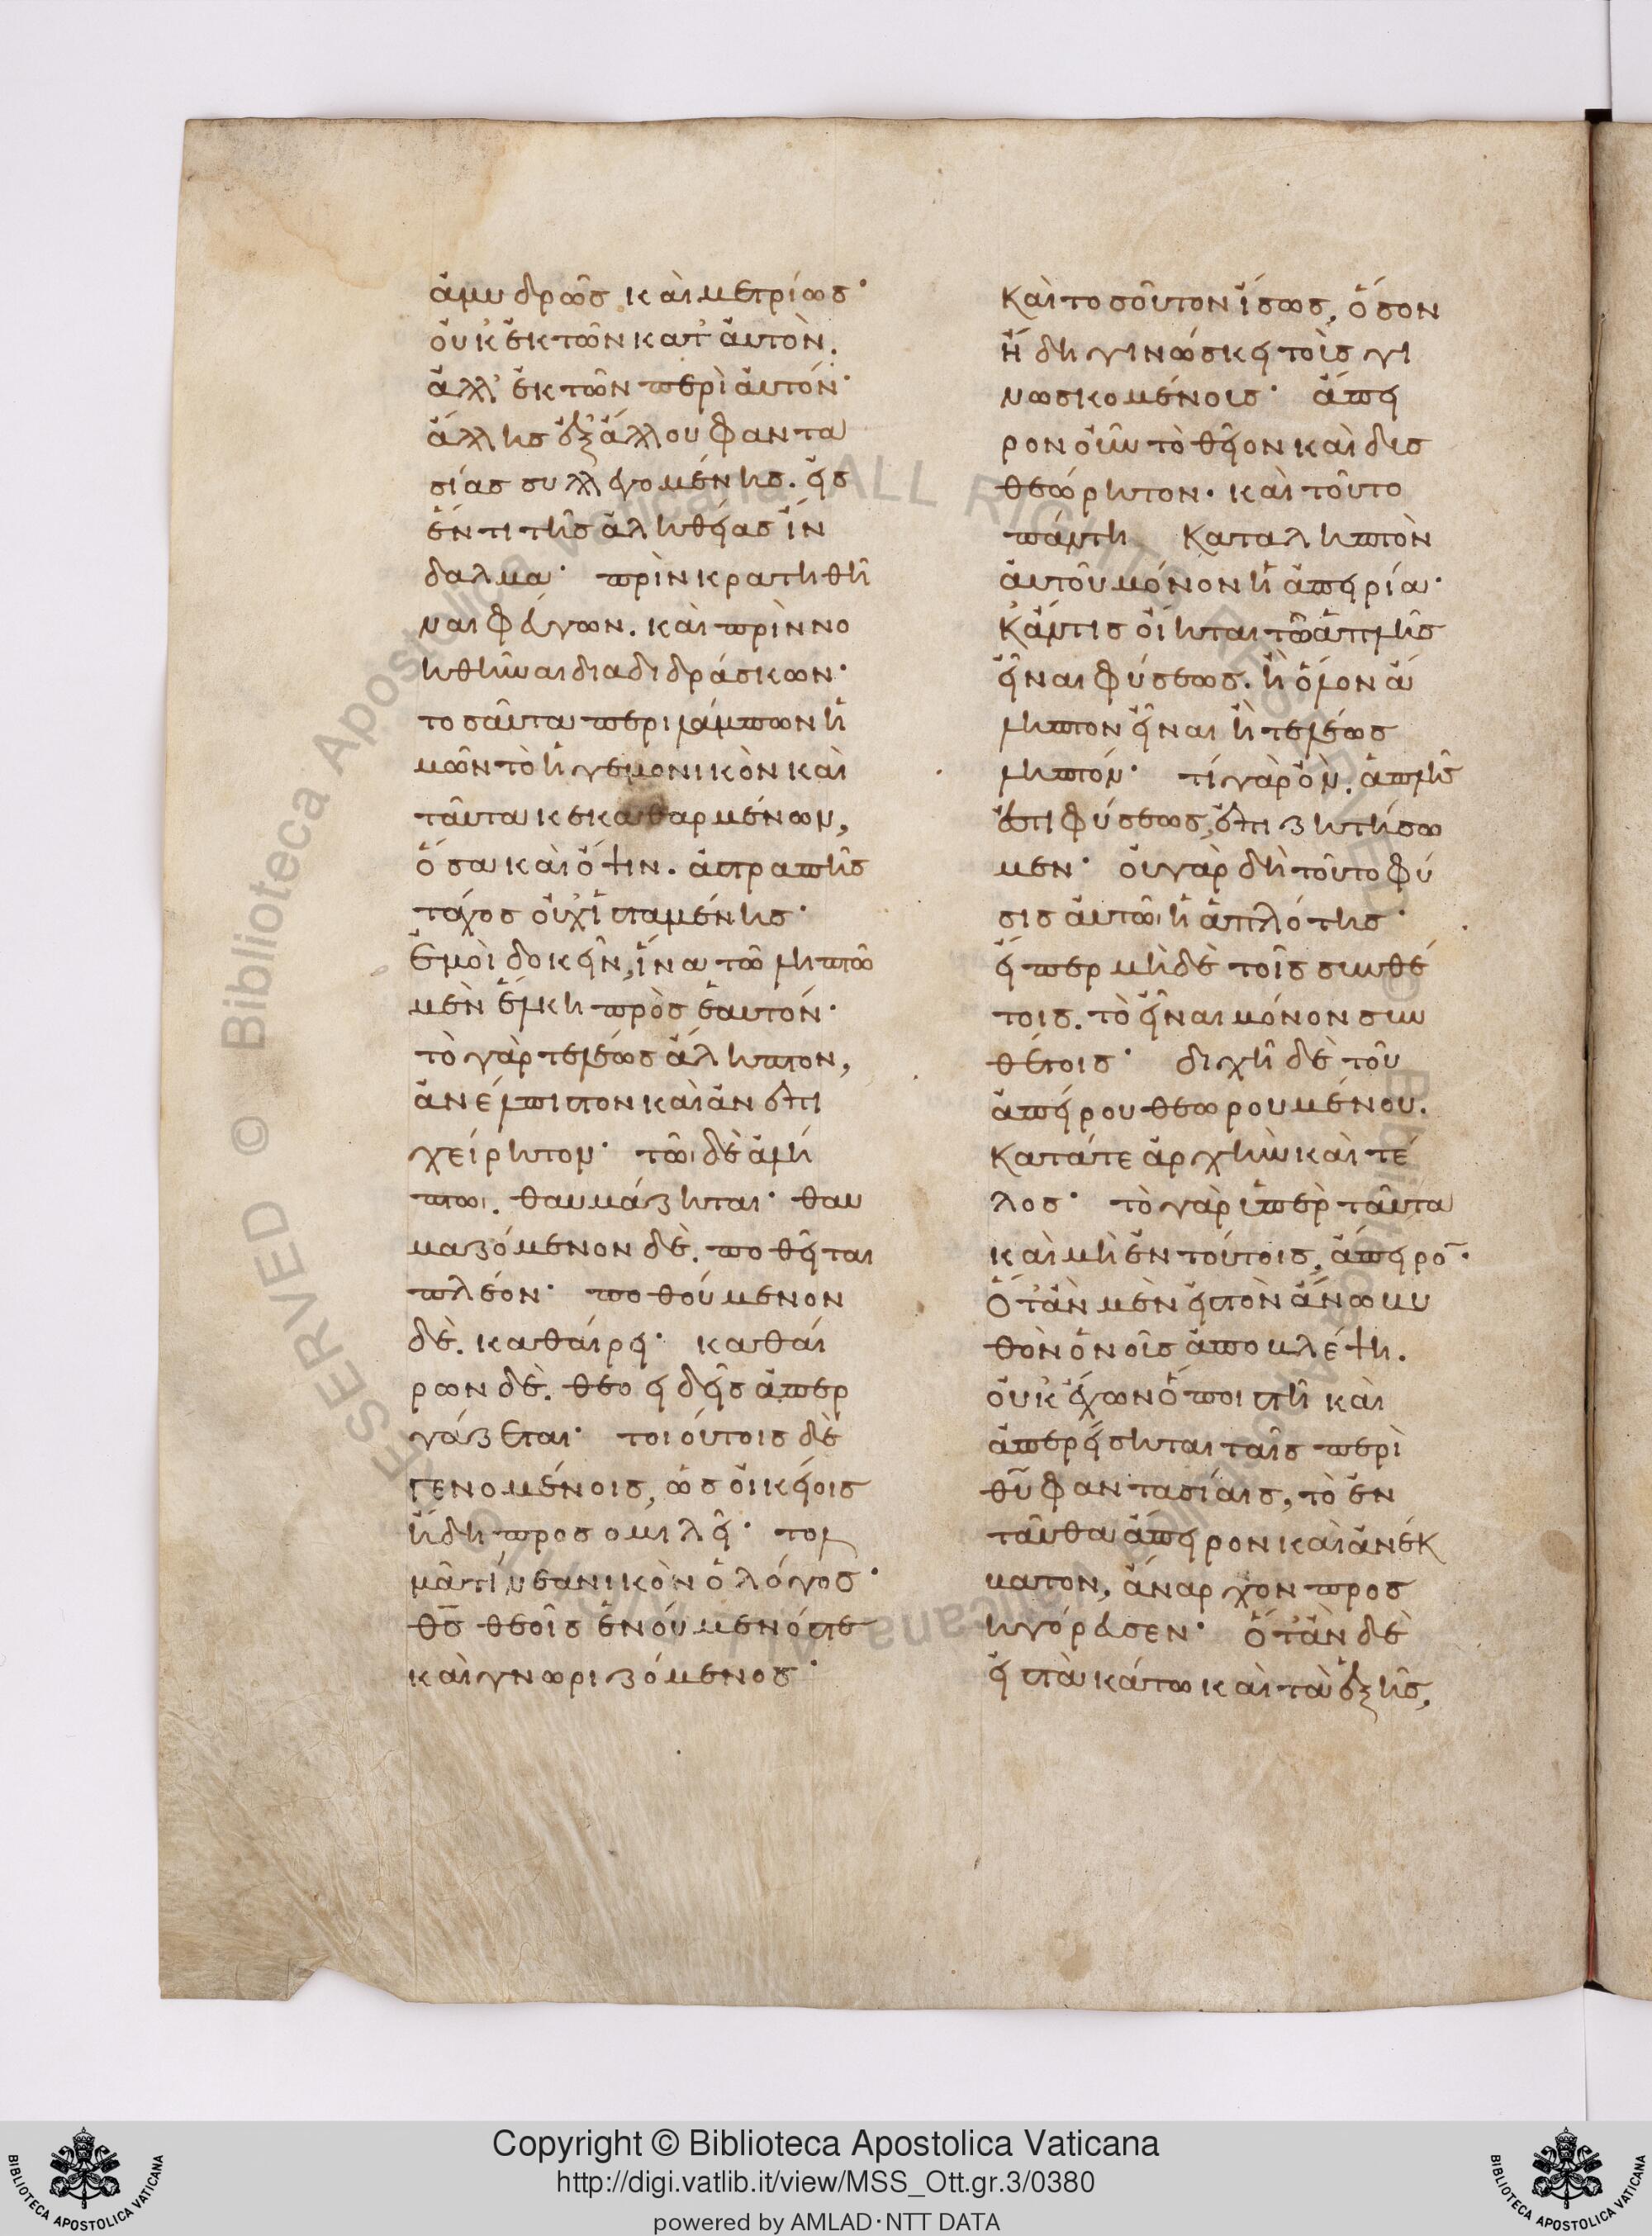 ἀμυδρῶς καὶ μετρίως·
οὐκ ἐκ τῶν κατ' αὐτὸν.
ἀλλ' ἐκ τῶν περὶ αὐτόν·
ἄλλης ἐξ ἄλλου φαντα
σίας συλλεγομένης. εἰς
ἕν τι τῆς ἀληθείας ἴν
δαλμα· πρὶν κρατηθῆ
ναι φεύγων. καὶ πρὶν νο
ηθῆναι διαδιδράσκων·
τοσαῦτα περιλάμπων ἡ
μῶν τὸ ἡγεμονικὸν καὶ
ταῦτα κεκαθαρμένων,
ὅσα καὶ ὄψιν. ἀστραπῆς
τάχος οὐχ ἱσταμένης·
Ἐμοὶ δοκεῖν, ἵνα τῶ ληπτῶ
μὲν ἕλκη πρὸς ἑαυτόν·
τὸ γὰρ τελέως ἄληπτον,
ἀνέλπιστον καὶ ἀνεπι
χείρητον· τῶι δὲ ἀλή
πτωι. θαυμάζηται· θαυ
μαζόμενον δὲ. ποθεῖται
πλέον· ποθούμενον
δὲ. καθαίρει· καθαί
ρων δὲ. θεοειδεῖς ἀπερ
γάζεται· τοιούτοις δὲ
γενομένοις, ὡς οἰκείοις
ἤδη προσομιλεῖ· τολ
μᾶ τι νεανικὸν ὁ λόγος·
θς θεοῖς ἑνούμενός τε
καὶ γνωριζόμενος·
καὶ τοσοῦτον ἴσως, ὅσον
ἤδη γινώσκει τοὶς γι
νωσκομένοις· ἄπει
ρον οὖν τὸ θεῖον καὶ δυσ
θεώρητον. καὶ τοῦτο
πάντη καταληπτὸν
αὐτοῦ μόνον ἡ ἀπειρία·
κἄν τις οἴηται τῶ ἁπλῆς
εἶναι φύσεως. ἢ ὅλον ἄ
ληπτον εἶναι ἢ τελέως
ληπτόν· τί γὰρ ὃν. ἁπλῆς
ἐστι φύσεως, ἐπιζητήσω
μεν· οὐ γὰρ δὴ τοῦτο φύ
σις αὐτῶι ἡ ἁπλότης·
εἴπερ μὴδὲ τοῖς συνθέ
τοις. τὸ εἶναι μόνον συν
θέτοις· διχῆ δὲ τοῦ
ἀπείρου θεωρουμένου.
κατά τε ἀρχὴν καὶ τέ
λος· τὸ γὰρ ὑπὲρ ταῦτα
καὶ μὴ ἐν τούτοις, ἄπειρο̄·
Ὅτ' ἂν μὲν εἰς τὸν ἄνω βυ
θὸν ὁ νοῦς ἀποβλέψη.
οὐκ ἔχων ὅποι στῆ καὶ
ἀπερείσηται ταῖς περὶ
θῦ φαντασίαις, τὸ ἐν
ταῦθα ἄπειρον καὶ ἀνέκ
βατον, ἄναρχον προσ
ηγόρευσεν· Ὅτ' ἂν δὲ
εἰς τὰ κάτω καὶ τὰ ἑξῆς,
Copyright © Biblioteca Apostolica Vaticana
http://digi.vatlib.it/view/MSS_Ott.gr.3/0380
powered by AMLAD·NTT DATA